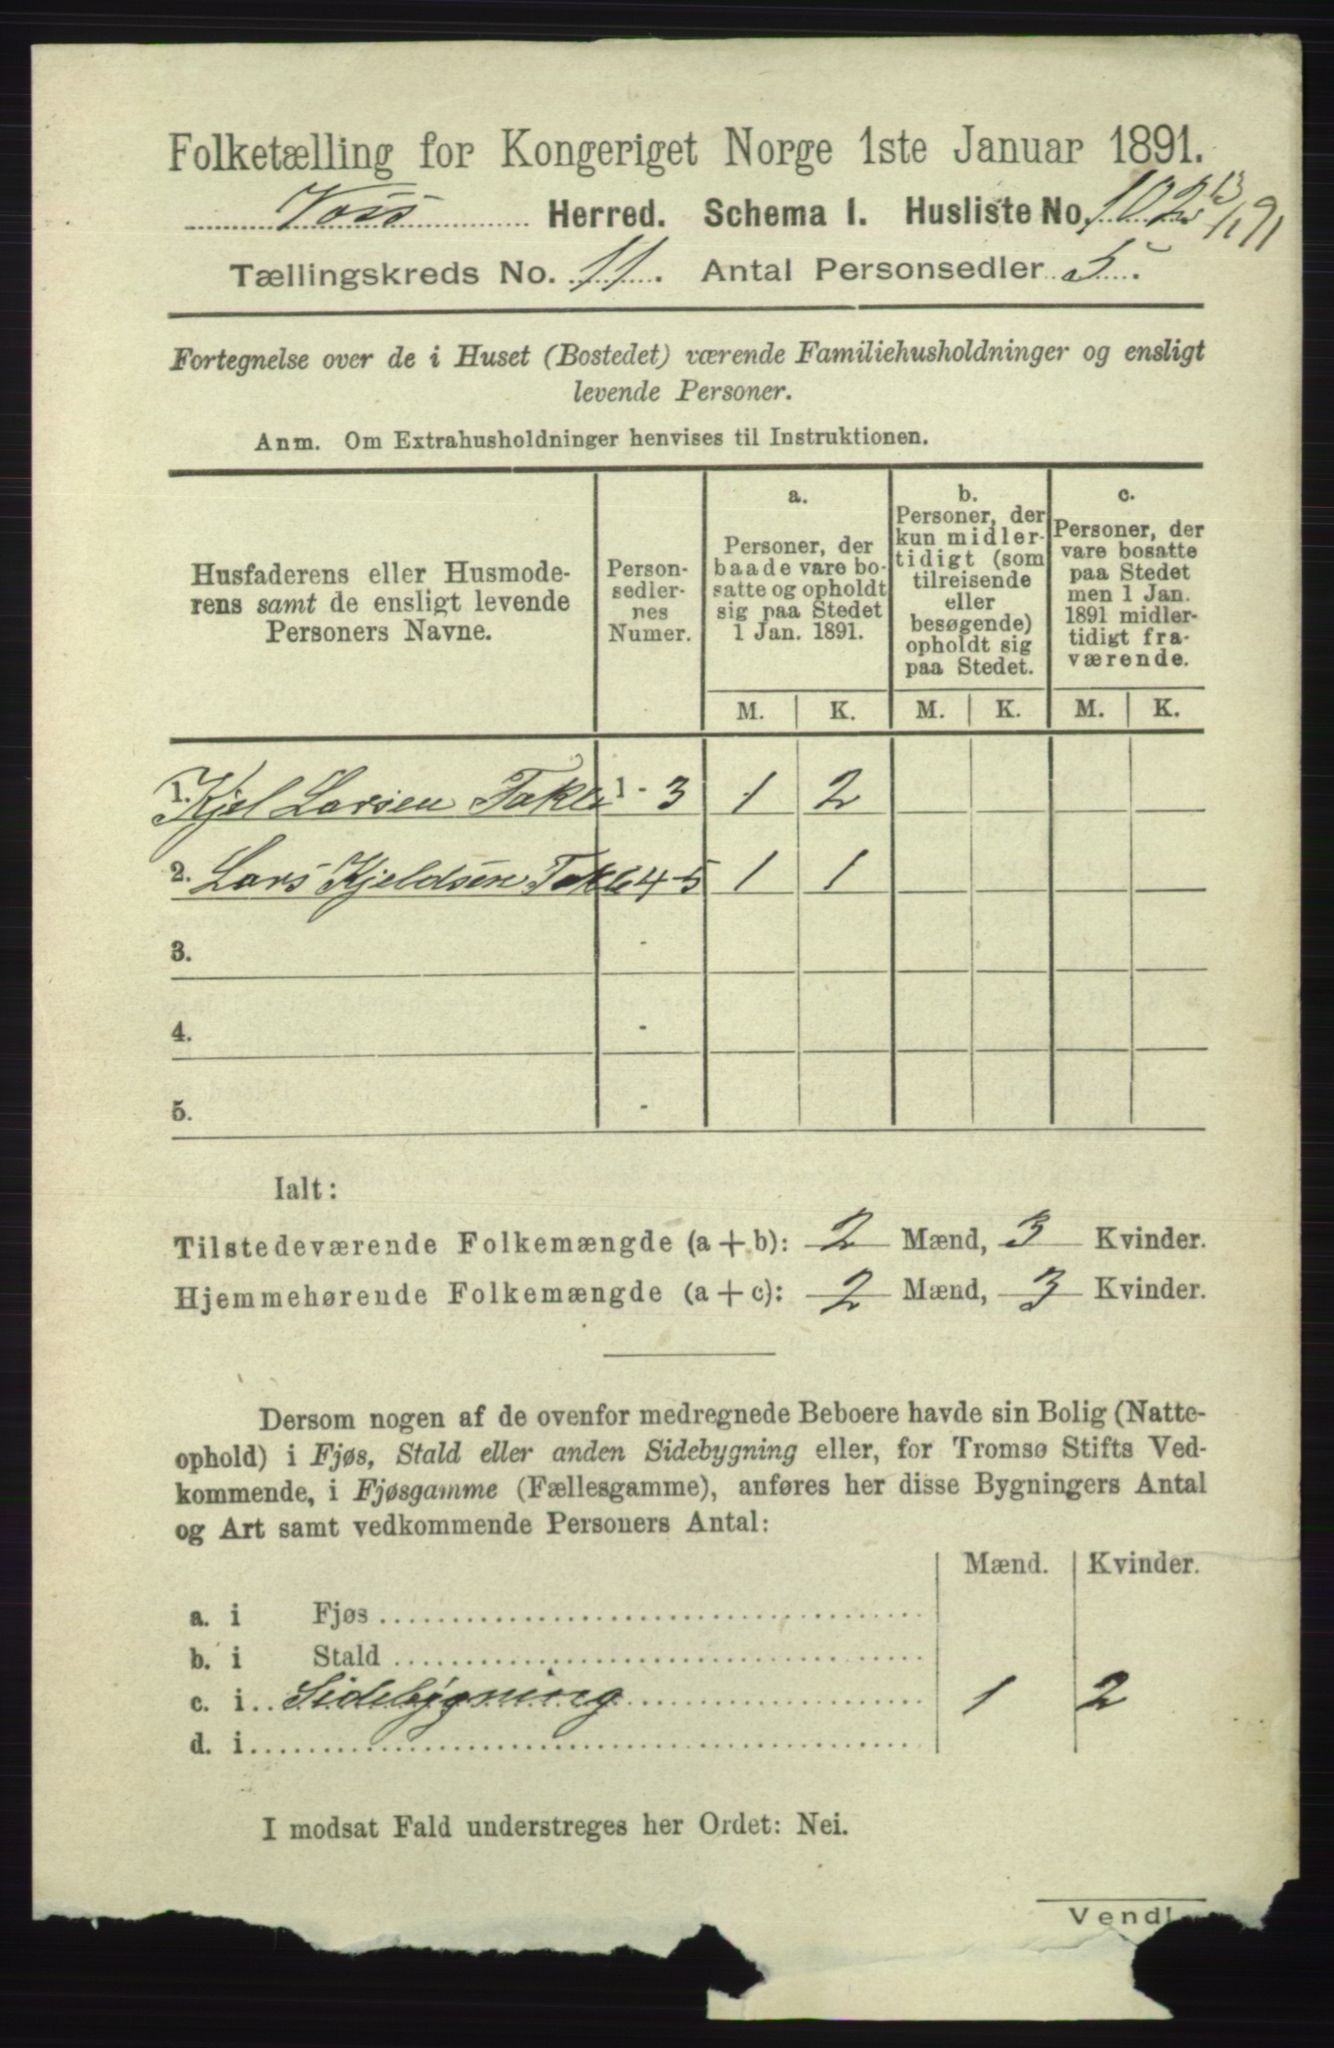 Folketælling for Kongeriget Norge 1ste Januar 1891.
Voss Herred. Schema 1. Husliste No. 102 13/1 91
Tællingskreds No. 11. Antal Personsedler 5.
Fortegnelse over de i Huset (Bostedet) værende Familiehusholdninger og ensligt
levende Personer.
Anm. Om Extrahusholdninger henvises til Instruktionen.
Husfaderens eller Husmode-
rens samt de ensligt levende
Personers Navne.
Person-
sedler-
nes
Numer.
a.
Personer, der
baade vare bo-
satte og opholdt
sig paa Stedet
1 Jan. 1891.
b.
Personer, der
kun midler-
tidigt (som
tilreisende
eller
besøgende)
opholdt sig
paa Stedet.
c.
Personer, der
vare bosatte
paa Stedet
men 1 Jan.
1891 midler-
tidigt fra-
værende.
M. K. M. K. M. K.
1. Kjel Larsen Takle 1 - 3 1 2
2. Lars Kjeldsen Takle 4-5 1 1
3. -
4. -
5. -
Ialt:
Tilstedeværende Folkemængde (a+b): 2 Mænd, 3 Kvinder.
Hjemmehørende Folkemængde (a+c): 2 Mænd, 3 Kvinder.
Dersom nogen af de ovenfor medregnede Beboere havde sin Bolig (Natte-
ophold) i Fjøs, Stald eller anden Sidebygning eller, for Tromsø Stifts Ved-
kommende, i Fjøsgamme (Fællesgamme), anføres her disse Bygningers Antal
og Art samt vedkommende Personers Antal:
Mænd. Kvinder.
a. i Fjøs
b. i Stald
c. i Sidebygning 1 2
d. i
I modsat Fald understreges her Ordet: Nei.